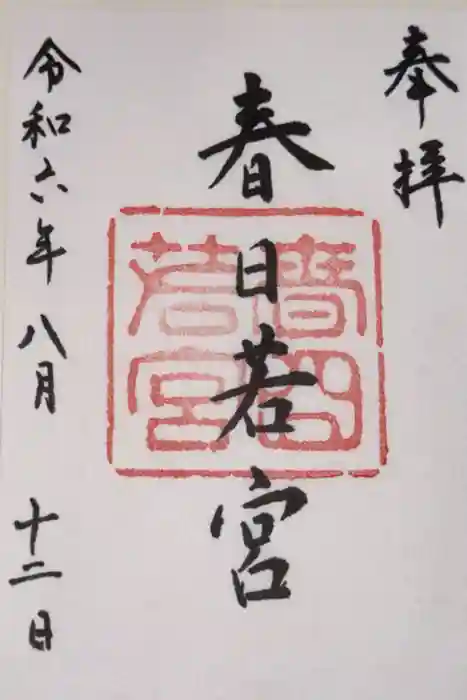 奉拝
春日若宮
春日
若宮
令和六年 八月 十二日